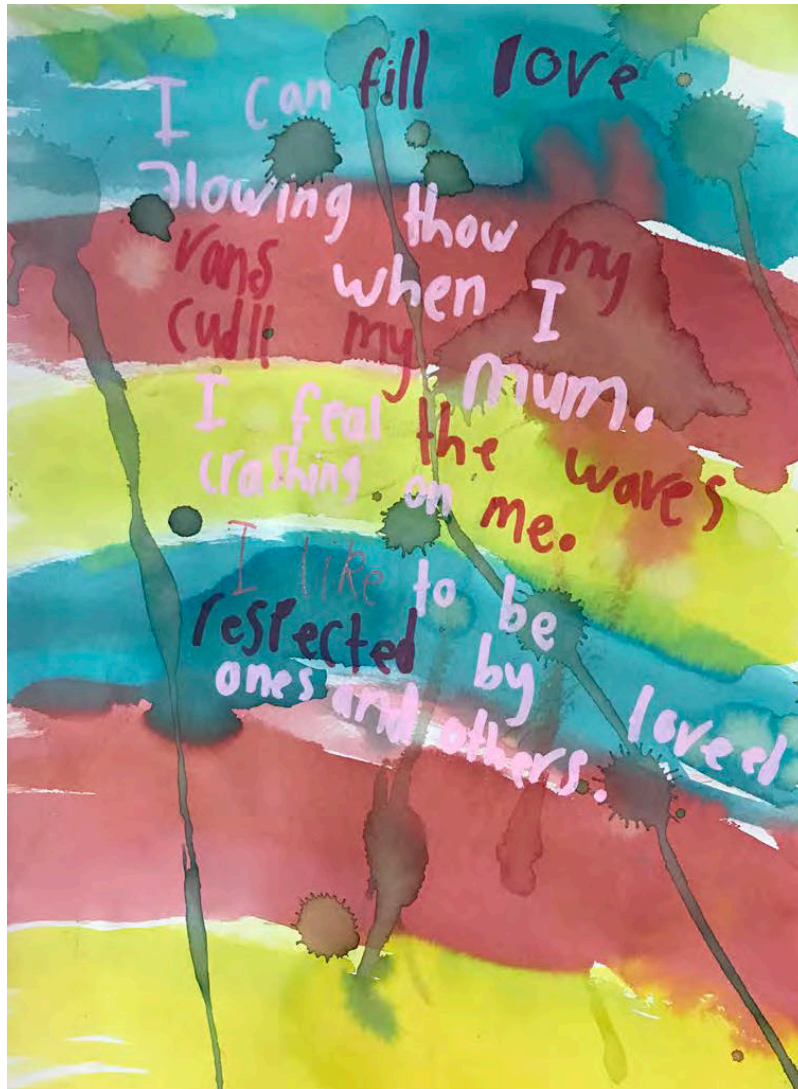 I can fill love
flowing thow my
vans when I
cudll my mum.
I feal the waves
crashing on me.
I like to be
respected by loveed
ones and others.